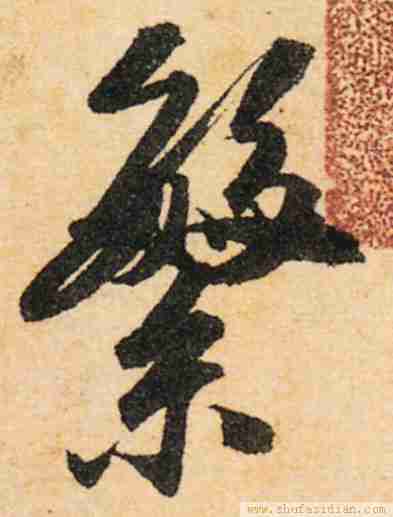 繁
www.shufazidian.com